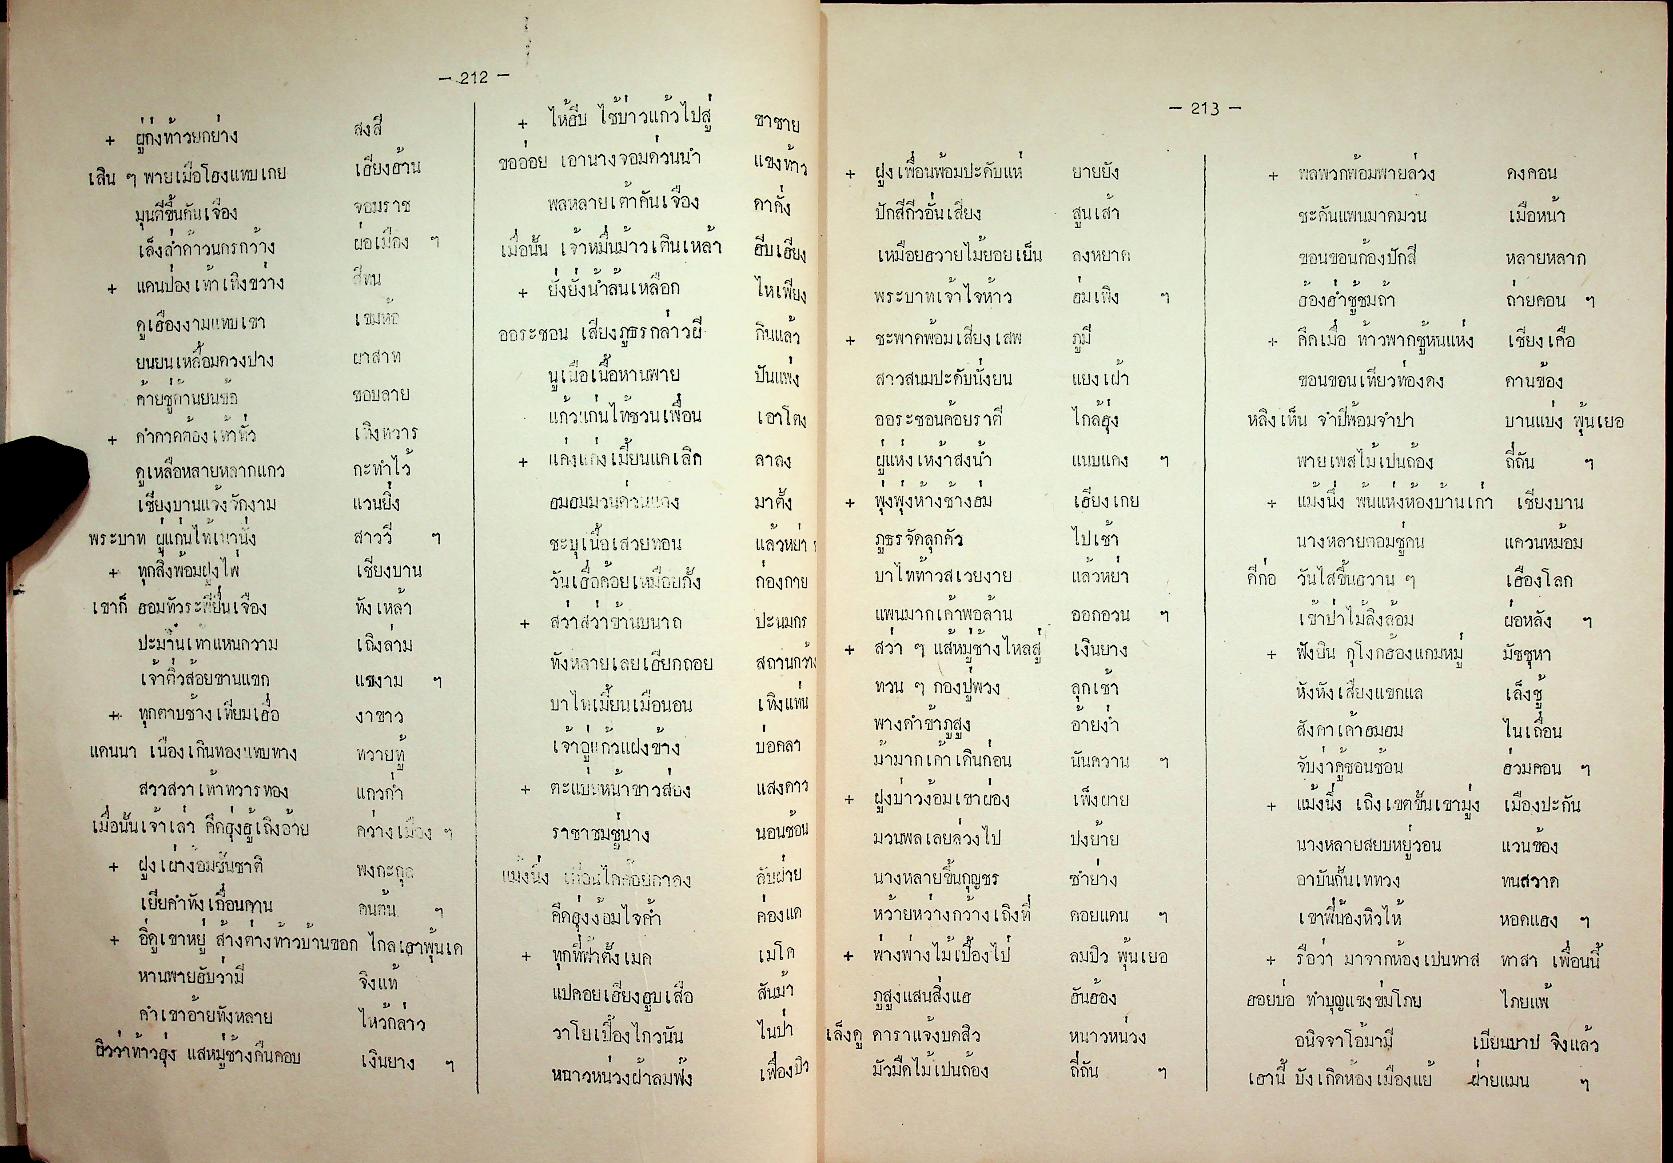 - 212 -
+ ผู่ก่งท้าวยกย่าง สงสี
เสิน ๆ พายเมือโฮงแทบเกย เฮียงฮ้าน
มุนตีขึ้นคันเจือง จอมราช
เล็งล่ำค้าวนครกว้าง ผ่อเมือง ๆ
+ แคนป่อง เท้าเทิงขว่าง สีทน
ดูเฮืองงามแทบเขา เขมห้อ
ยนยนเหลื้อมควงปาง ผาสาท
ค้ายชู่ด้านยนย้อ ขอบลาย
+ คำกาดต้องเท้าทั่ว เทิงทวาร
ดูเหลือหลายหลากแกว กะทำไว้
เชียงบานแจ้งจักงาม แวนยิ่ง
พระบาท ผู่แก่นไท้เทานั่ง สาววี ๆ
+ ทุกสิ่งพ้อมฝูงไพ่ เชียงบาน
เขาก็ ฮอมทัวระพียื่นเจือง ทังเหล้า
ปะม่านเท้าแหนกวาม เถิงล่าม
เจ้าติ่วส้อยขานแขก แขงาม ๆ
+ ทุกตาบช้างเทียมเฮื่อ งาขาว
แคนนา เนืองเกินทองแทบทาง ทวายทู้
สวสวาเท้าทวารทอง แกวก่ำ
เมื่อนั้นเจ้าเล่า คึดฮุ่งฮู้เถิงอ้าย คว่างเมือง ๆ
+ ฝูงเผ่าง้อมชั้นชาติ พงกะกุล
เยียคำทังเถื่อนดาน คนค้น ๆ
+ อี่ดูเขาหยู่ ส้างต่างท้าวบ้านขอก ไกลเฮาพุ้นเด
หานพายฮับว่ามี จิงแท้
คำเขาอ้ายทังหลาย ไหว้กล่าว
ฮิวว่าท้าวฮุ่ง แสหมู่ช้างคืนคอบ เงินยาง ๆ
+ ไห้ฮีบ ไช้บ่าวแก้วไปสู่ ชาชาย
ขอฮ่อย เอานางจอมด่วนนำ แขงท้าว
พลหลายเต้าคันเจือง คาคั่ง
เมื่อนั้น เจ้าหมื่นม้าวเตินเหล้า ฮีบเฮียง
+ ยั่งยั่งน้ำล้นเหลือก ไหเพียง
ออระชอน เสียงภูธรกล่าวผี กินแล้ว
นูเนื้อเนื้อหานพาย ปันแพ่ง
แก้วแก่นไท้ชวนเพื่อน เอาโตง
+ แค่งแค่งเมี้ยนแดเลิก ลาถง
ฮมฮมมวนด่านแถง มาตั้ง
ชะบุเนื้อเสวยทอน แล้วหย่า
วันเฮื่อค้อยเหมือยกั้ง ก่องกาย
+ สว่าสว่าข้านบนาถ ปะนมกร
ทังหลายเลยเฮียกถอย สถานกว้าง
บาไทเมี้ยนเมือนอน เทิงแท่น
เจ้าอู่แก้วแฝงข้าง บ่อคลา
+ ตะแบ่นหน้าขาวส่อง แสงดาว
ราชาชมชู่นาง นอนซ้อน
แม้งนึ่ง ลับฝ่าย
คึดฮุ่งง้อมไจค้ำ ค่องแค
+ ทุกที่ฟ้าตั้งเมค เมโค
แปคอยเฮียงฮูบเสือ สันม้า
วาโยเปื้องไกวนัน ไนป่า
หนาวหน่วงฝ้าลมฟั้ง เฟื่องปิว
- 213 -
+ ฝูงเพื่อนพ้อมปะดับแห่ ยายยัง
ปักสีกีวอั่นเสียง สูนเส้า
เหมือยฮวายไม้ยอยเย็น ลงหยาด
พระบาทเจ้าไจห้าว ฮ่มเพิง ๆ
+ ชะพาดพ้อมเสียงเสพ ภูมี
สาวสนมปะดับนั่งยน แยงเฝ้า
ออระชอนค้อยราตี ไกล้ฮุ่ง
ผู่แห่งเหง้าส่งน้ำ แนบแดง ๆ
+ พุ่งพุ่งห้างช้างฮ่ม เฮียงเกย
ภูธรจัดลุกคัว ไปเช้า
บาไทท้าวสเวยงาย แล้วหย่า
แพนมากเค้าพอล้าน ออกอวน ๆ
+ สว่า ๆ แส้หมู่ช้างไหลสู่ เงินยาง
ทวน ๆ กองปู่พวง ลุกเช้า
พางคำข้าภูสูง อ้ายง่ำ
ม้ามากเค้าเดินก่อน นันควาน ๆ
+ ฝูงบ่าวง้อมเขาผ่อง เพ็งผาย
มวนพลเลยล่วงไป ปงย้าย
นางหลายขึ้นกุญชร ช่ำย่าง
หว้ายหว่างกว้างเถิงที่ ดอยแดน ๆ
+ พ่างพ่างไม้เปื้องไป่ ลมปิว พุ้นเยอ
ภูสูงแสนสิ่งแฮ ฮันฮ้อง
เล็งดู ดาราแจ้งบดสิว หนาวหน่วง
มัวมืดไม้เปนถ้อง ถี่ถัน ๆ
+ พลพวกพ้อมพายล่วง ดงดอน
ชะกันแพนมาดมวน เมือหน้า
ขอนขอนก้องปักสี หลายหลาก
ฮ้องฮ่ำชู้ชมถ้า ถ่ายคอน ๆ
+ คึดเมื่อ ท้าวพากชู้หนแห่ง เชียงเคือ
ขอนขอนเทียวท่องดง ดานข้อง
หลิงเห็น จำปีพ้อมจำปา บานแบ่ง พุ้นเยอ
พายเพสไม้เปนถ้อง ถี่ถัน ๆ
+ แม้งนึ่ง พ้นแห่งห้องบ้านเก่า เชียงบาน
นางหลายตอมชู่คน แควนหม้อม
คีก่อ วันไสขึ้นฮวาน ๆ เฮืองโลก
เช้าป่าไม้ลิงล้อม ผ่อหลัง ๆ
+ ฟังยิน กุโงกฮ้องแกมหมู่ มัชชุหา
หังหังเสียงแขกแล เล็งชู้
สังคาเค้าฮมฮม ไนเถื่อน
จับง่าคู้ซอนซ้อน ฮ่วมคอน ๆ
+ แม้งนึ่ง เถิงเขตขั้นเขามุ่ง เมืองปะกัน
นางหลายสยบหยู่วอน แวนข้อง
อาบันกั้นเททวง ทนสวาด
เขาพี่น้องหิวไห้ หอดแฮง ๆ
+ รือว่า มาจากห้องเปนทาส ทาสา เพื่อนนี้
ฮอยบ่อ ทำบุญแขงข่มโภย ไภยแพ้
อนิจจาโอ้มามี่ เบียนบาป จิงแล้ว
เฮานี้ บังเกิดห้องเมืองแย้ ฝ่ายแมน ๆ